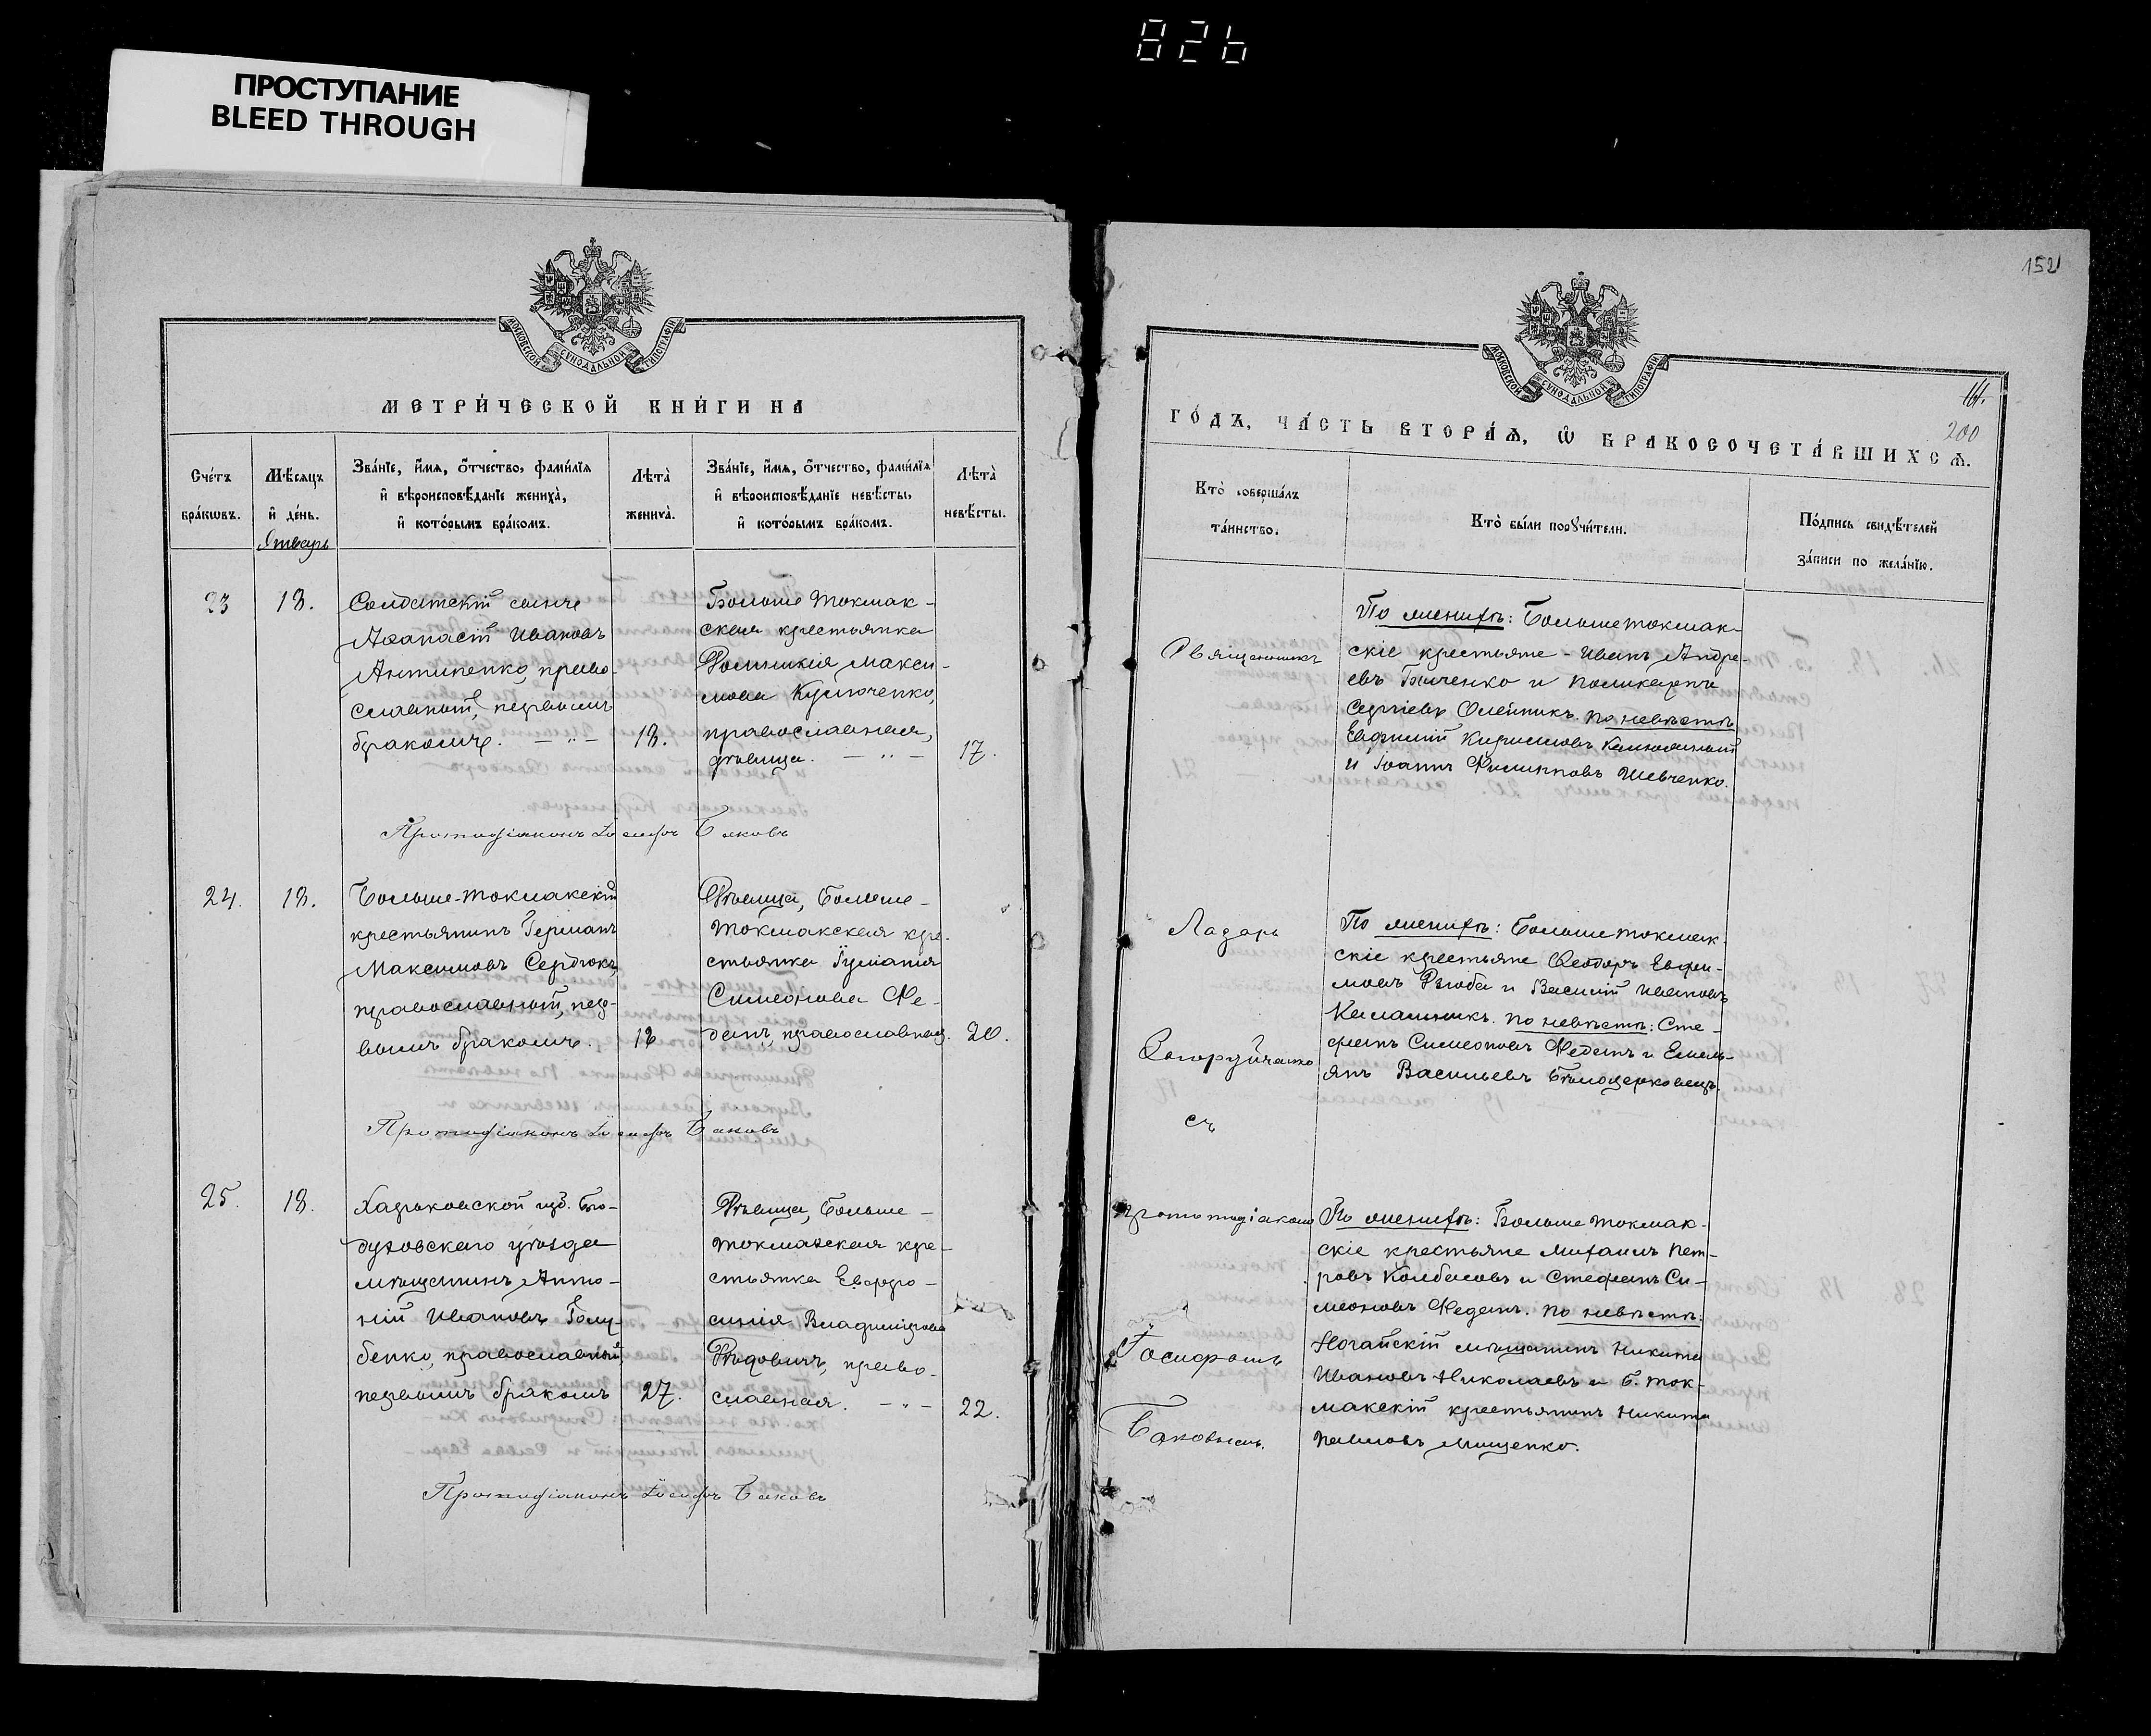 826
ПРОСТУПАНИЕ
BLEED THROUGH
МОСКОВСКОЙ СѴНОДАЛЬНОЙ ТИПОГРАФІИ
МЕТРИ́ЧЕСКОЙ КНИ́ГИ НА
Сче́тъ бра́кѡвъ.
Мѣ́сяцъ и҆ де́нь.
Январь
Зва́нїе, и҆́мѧ, ѻ҆́тчество, фами́лїѧ
и҆ вѣроисповѣ́данїе жениха̀,
и҆ кото́рымъ бра́комъ.
Лѣта̀ жениха̀.
Зва́нїе, и҆́мѧ, ѻ҆́тчество, фами́лїѧ
и҆ вѣроисповѣ́данїе невѣ́сты,
и҆ кото́рымъ бра́комъ.
Лѣта̀ невѣ́сты.
23
18.
Солдатскій сынъ
Аѳанасій Ивановъ
Антипенко, право-
славный, первымъ
бракомъ. — „ —
18.
Больше Токмак-
ская крестьянка
Макси-
мова
православная,
дѣвица. — „ —
17.
Протодіаконъ Іосифъ Баковъ
24.
18.
Больше-Токмакскій
крестьянинъ Германъ
Максимовъ Сердюкъ,
православный, пер-
вымъ бракомъ.
18
Дѣвица, Больше-
Токмакская кре-
стьянка Іуліанія
Симеонова Фе-
денъ, православная.
20.
Протодіаконъ Іосифъ Баковъ
25.
18.
Харьковской губ. Бого-
духовскаго уѣзда
мѣщанинъ Анто-
ній Ивановъ Голу-
бенко, православный,
первымъ бракомъ
27.
Дѣвица, Больше-
Токмакская кре-
стьянка Евфро-
синія Владимірова
Дѣдовичъ, право-
славная. — „ —
22.
Протодіаконъ Іосифъ Баковъ
152
МОСКОВСКОЙ СѴНОДАЛЬНОЙ ТИПОГРАФІИ
200
ГО́ДЪ, ЧА́СТЬ ВТОРА́Ѧ, Ѽ БРАКОСОЧЕТА́ВШИХСѦ.
Кто̀ соверша́лъ
та́инство.
Кто̀ бы́ли порꙋчи́тели.
По́дпись свидѣ́телей
за́писи по жела́нїю.
Священникъ
Лазарь
Загоруйченко
съ
протодіакономъ
Іосифомъ
Баковымъ.
По женихѣ: Больше токмак-
скіе крестьяне - Иванъ Андре-
евъ и Поликарпъ
Сергіевъ Олейникъ. По невѣстѣ
Евфимій Кирилловъ
и Іоаннъ Филипповъ Шевченко.
По женихѣ: Больше токмак-
скіе крестьяне Ѳеодоръ Евфи-
мовъ Дзюба и Василій Ивановъ
Калашникъ. По невѣстѣ: Сте-
фанъ Симеоновъ Феденъ и Емель-
янъ Васильевъ Бѣлоцерковецъ.
По женихѣ: Больше Токмак-
скіе крестьяне Михаилъ Пет-
ровъ Колбасовъ и Стефанъ Си-
меоновъ Феденъ. По невѣстѣ:
Ногайскій мѣщанинъ Никита
Ивановъ Николаевъ и Б. Ток-
макскій крестьянинъ Никита
Павловъ Мищенко.